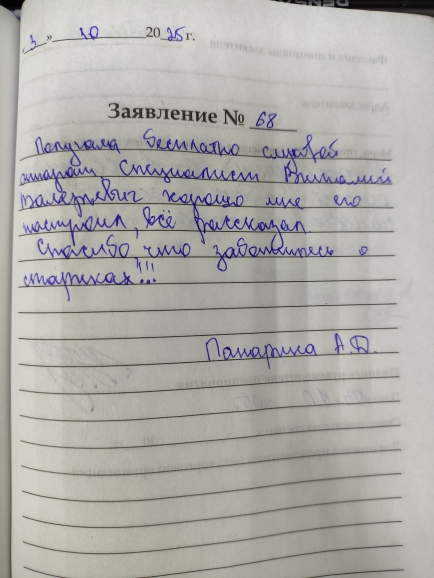 « 3 » 10 2025 г.
Заявление № 68
Получила бесплатно слуховой
аппарат, специалист Виталий
Валерьевич хорошо мне его
настроил, всё рассказал.
Спасибо, что заботитесь о
стариках!!!
А.Д.